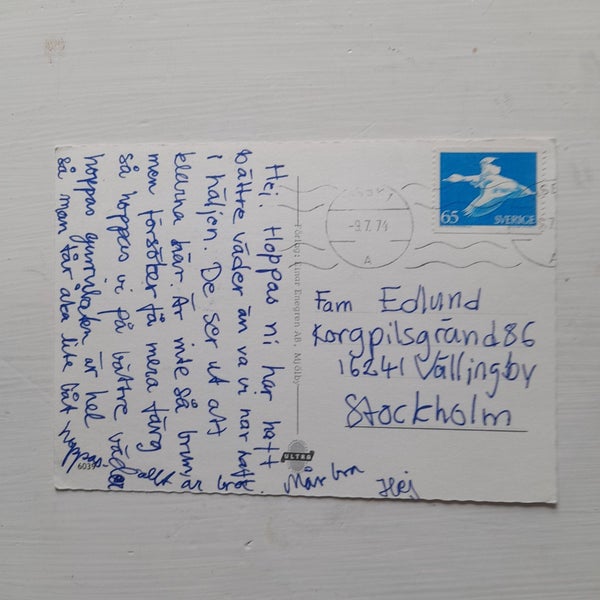 Hej. Hoppas ni har haft
bättre väder än va vi har haft
i häljen. De ser ut att
klarna här. Är inte så brun
men försöker få mera färg allt är bra
så hoppas vi på bättre väder
hoppas gummibåten är hel
så man får åka lite båt
Hoppas
Mår bra
Hej
65
SVERIGE
-9.7.74
A
Fam Edlund
Korgpilsgränd 86
16241 Vällingby
Stockholm
Förlag: Einar Enegren AB, Mjölby
ULTRA
6039